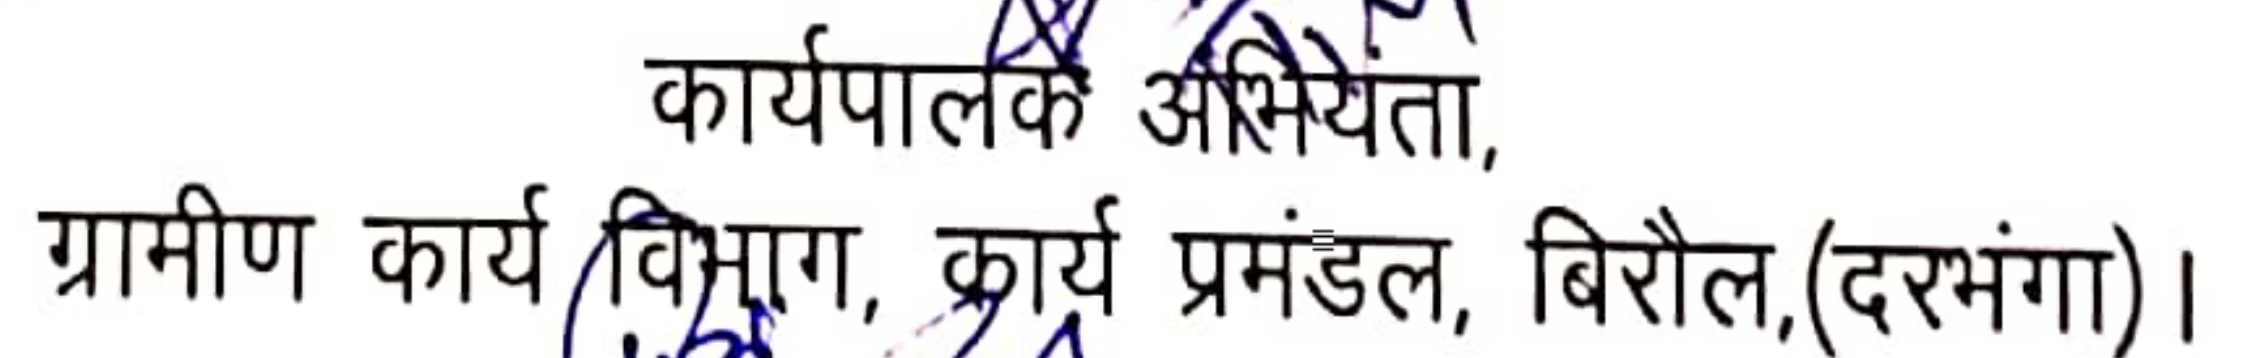 कार्यपालक अभियंता,
ग्रामीण कार्य विभाग, कार्य प्रमंडल, बिरौल,(दरभंगा)।